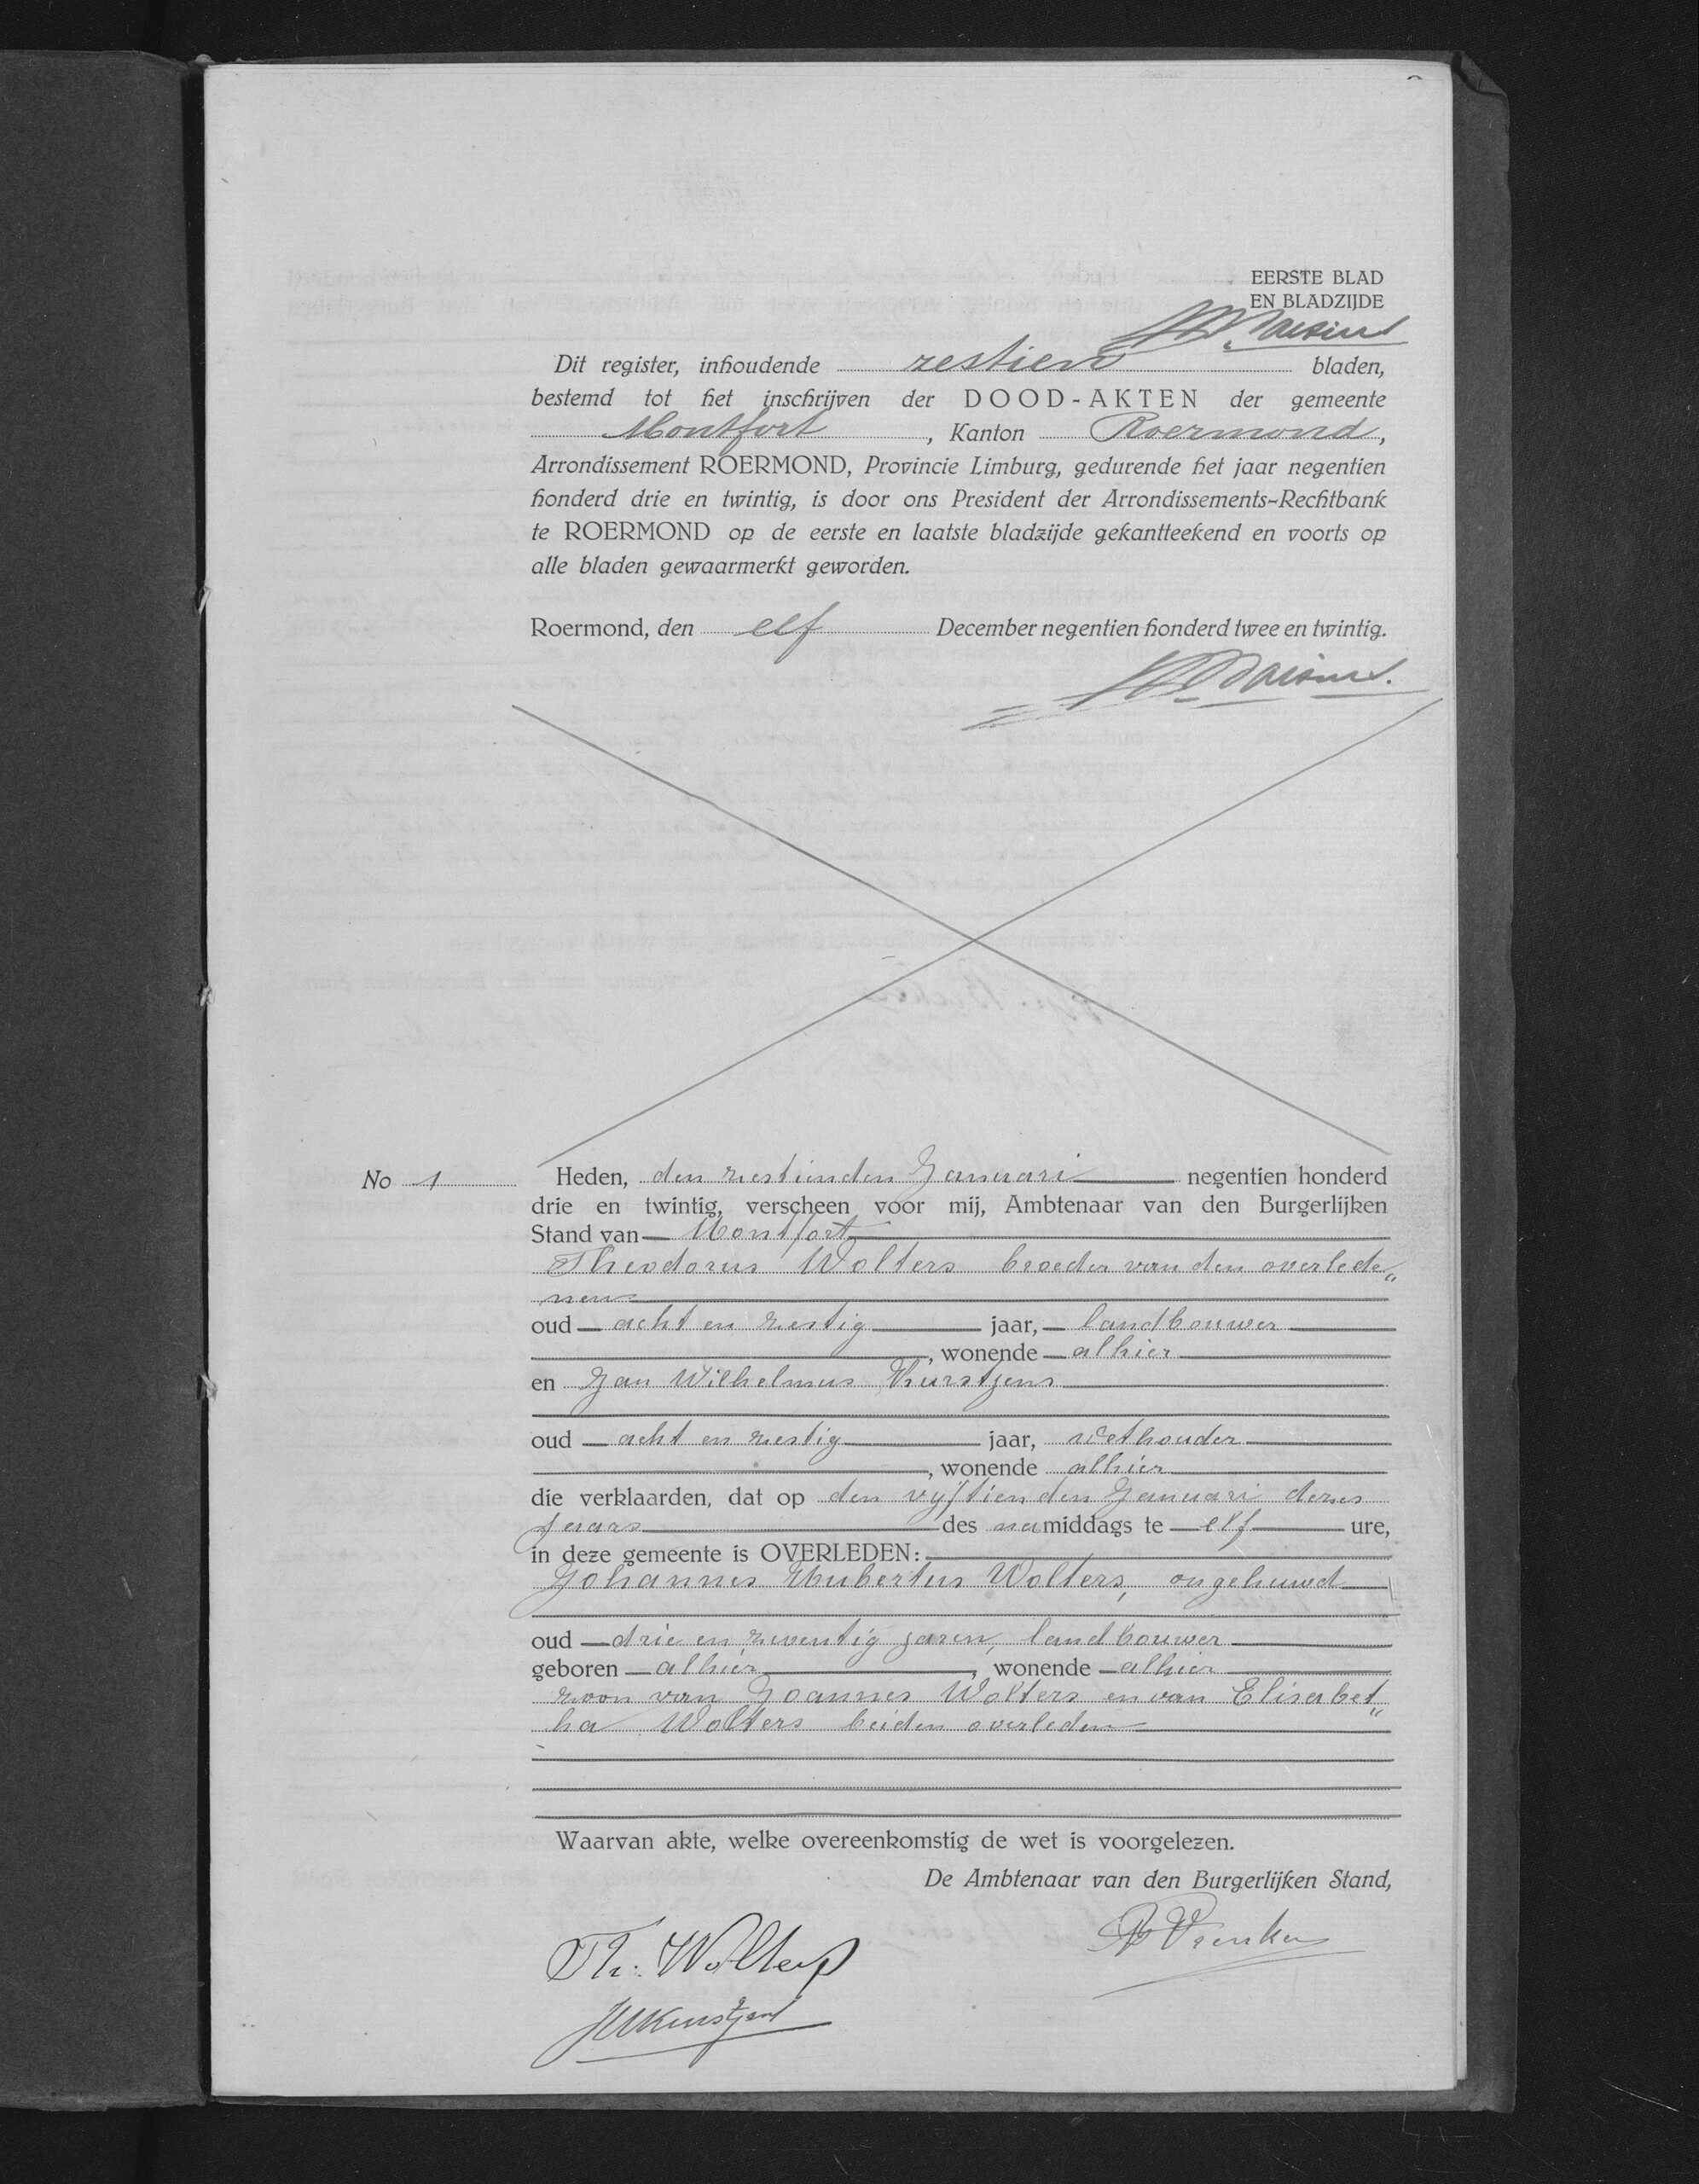 EERSTE BLAD
EN BLADZIJDE
Dit register, inhoudende zestien bladen,
bestemd tot het inschrijven der DOOD-AKTEN der gemeente
Montfort, Kanton Roermond,
Arrondissement ROERMOND, Provincie Limburg, gedurende het jaar negentien
honderd drie en twintig, is door ons President der Arrondissements-Rechtbank
te ROERMOND op de eerste en laatste bladzijde gekantteekend en voorts op
alle bladen gewaarmerkt geworden.
Roermond, den elf December negentien honderd twee en twintig.
No 1 Heden, den zestienden Januari negentien honderd
drie en twintig, verscheen voor mij, Ambtenaar van den Burgerlijken
Stand van Montfort
Theodorus Wolters broeder van den overlede„
nen
oud acht en zestig jaar, landbouwer
, wonende alhier
en Jan Wilhelmus Kurstjens
oud acht en zestig jaar, wethouder
, wonende alhier
die verklaarden, dat op den vijftienden Januari dezes
jaars des namiddags te elf ure,
in deze gemeente is OVERLEDEN:
Johannes Hubertus Wolters, ongehuwd
oud drie en zeventig jaren, landbouwer
geboren alhier, wonende alhier
zoon van Joannes Wolters en van Elisabet„
ha Wolters beiden overleden
Waarvan akte, welke overeenkomstig de wet is voorgelezen.
De Ambtenaar van den Burgerlijken Stand,
Th. Wolters
JWKurstjens